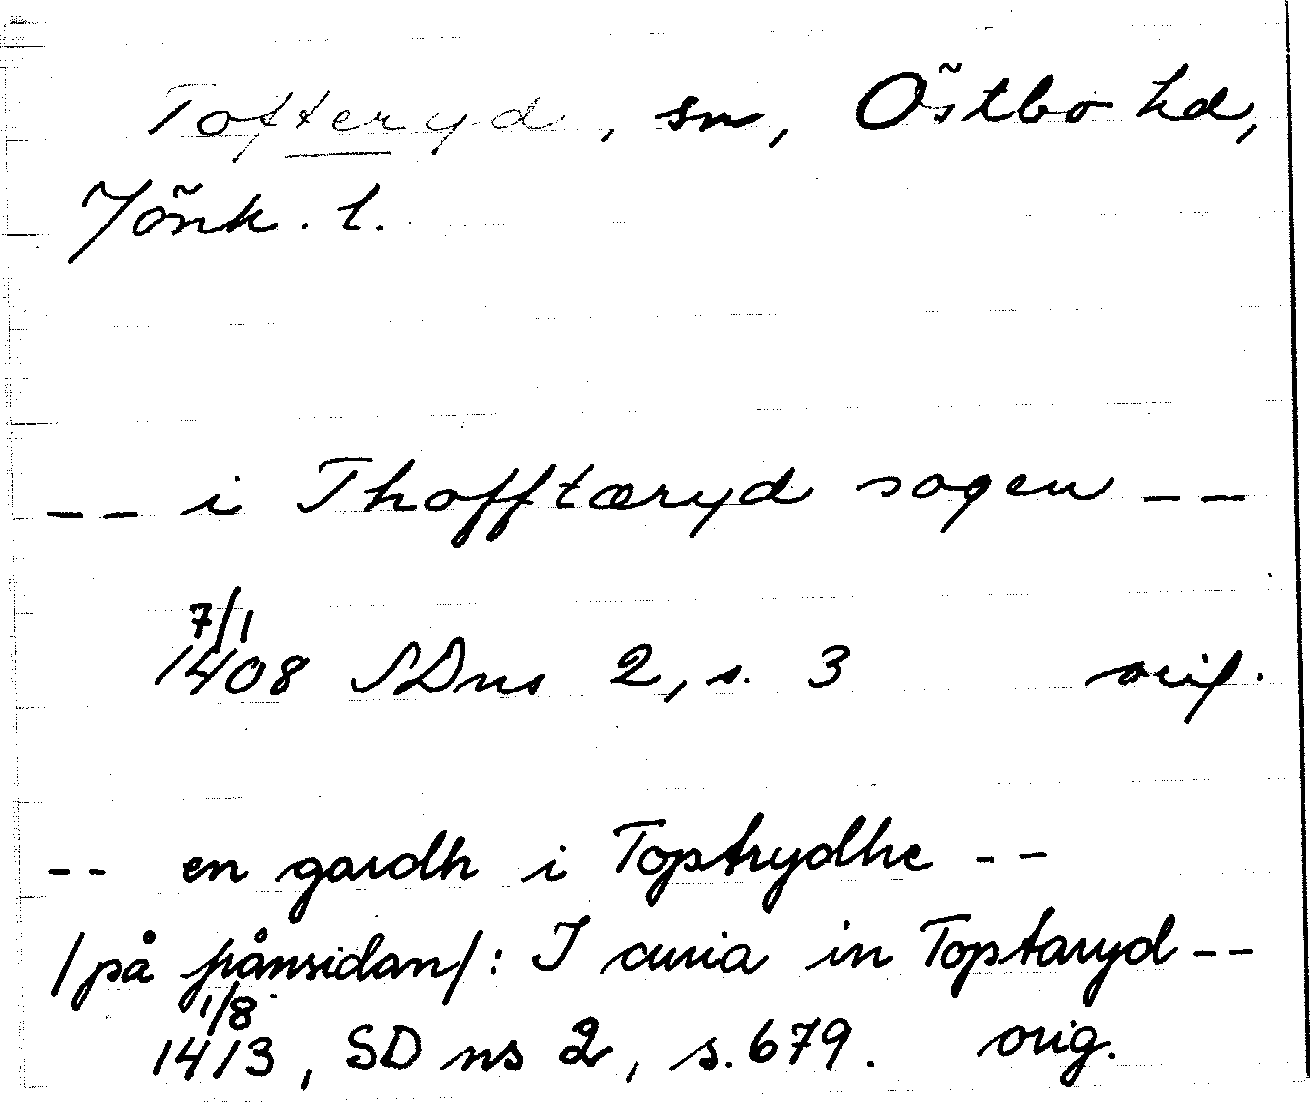 Tofteryd, sn, Östbo hd,
Jönk. l.
-- i Thofftæryd sogen --
7/1
1408 SDns 2, s. 3 orig.
-- en gardh i Toptrydhe --
/på frånsidan/: I curia in Toptaryd --
1/8
1413, SD ns 2, s. 679. orig.